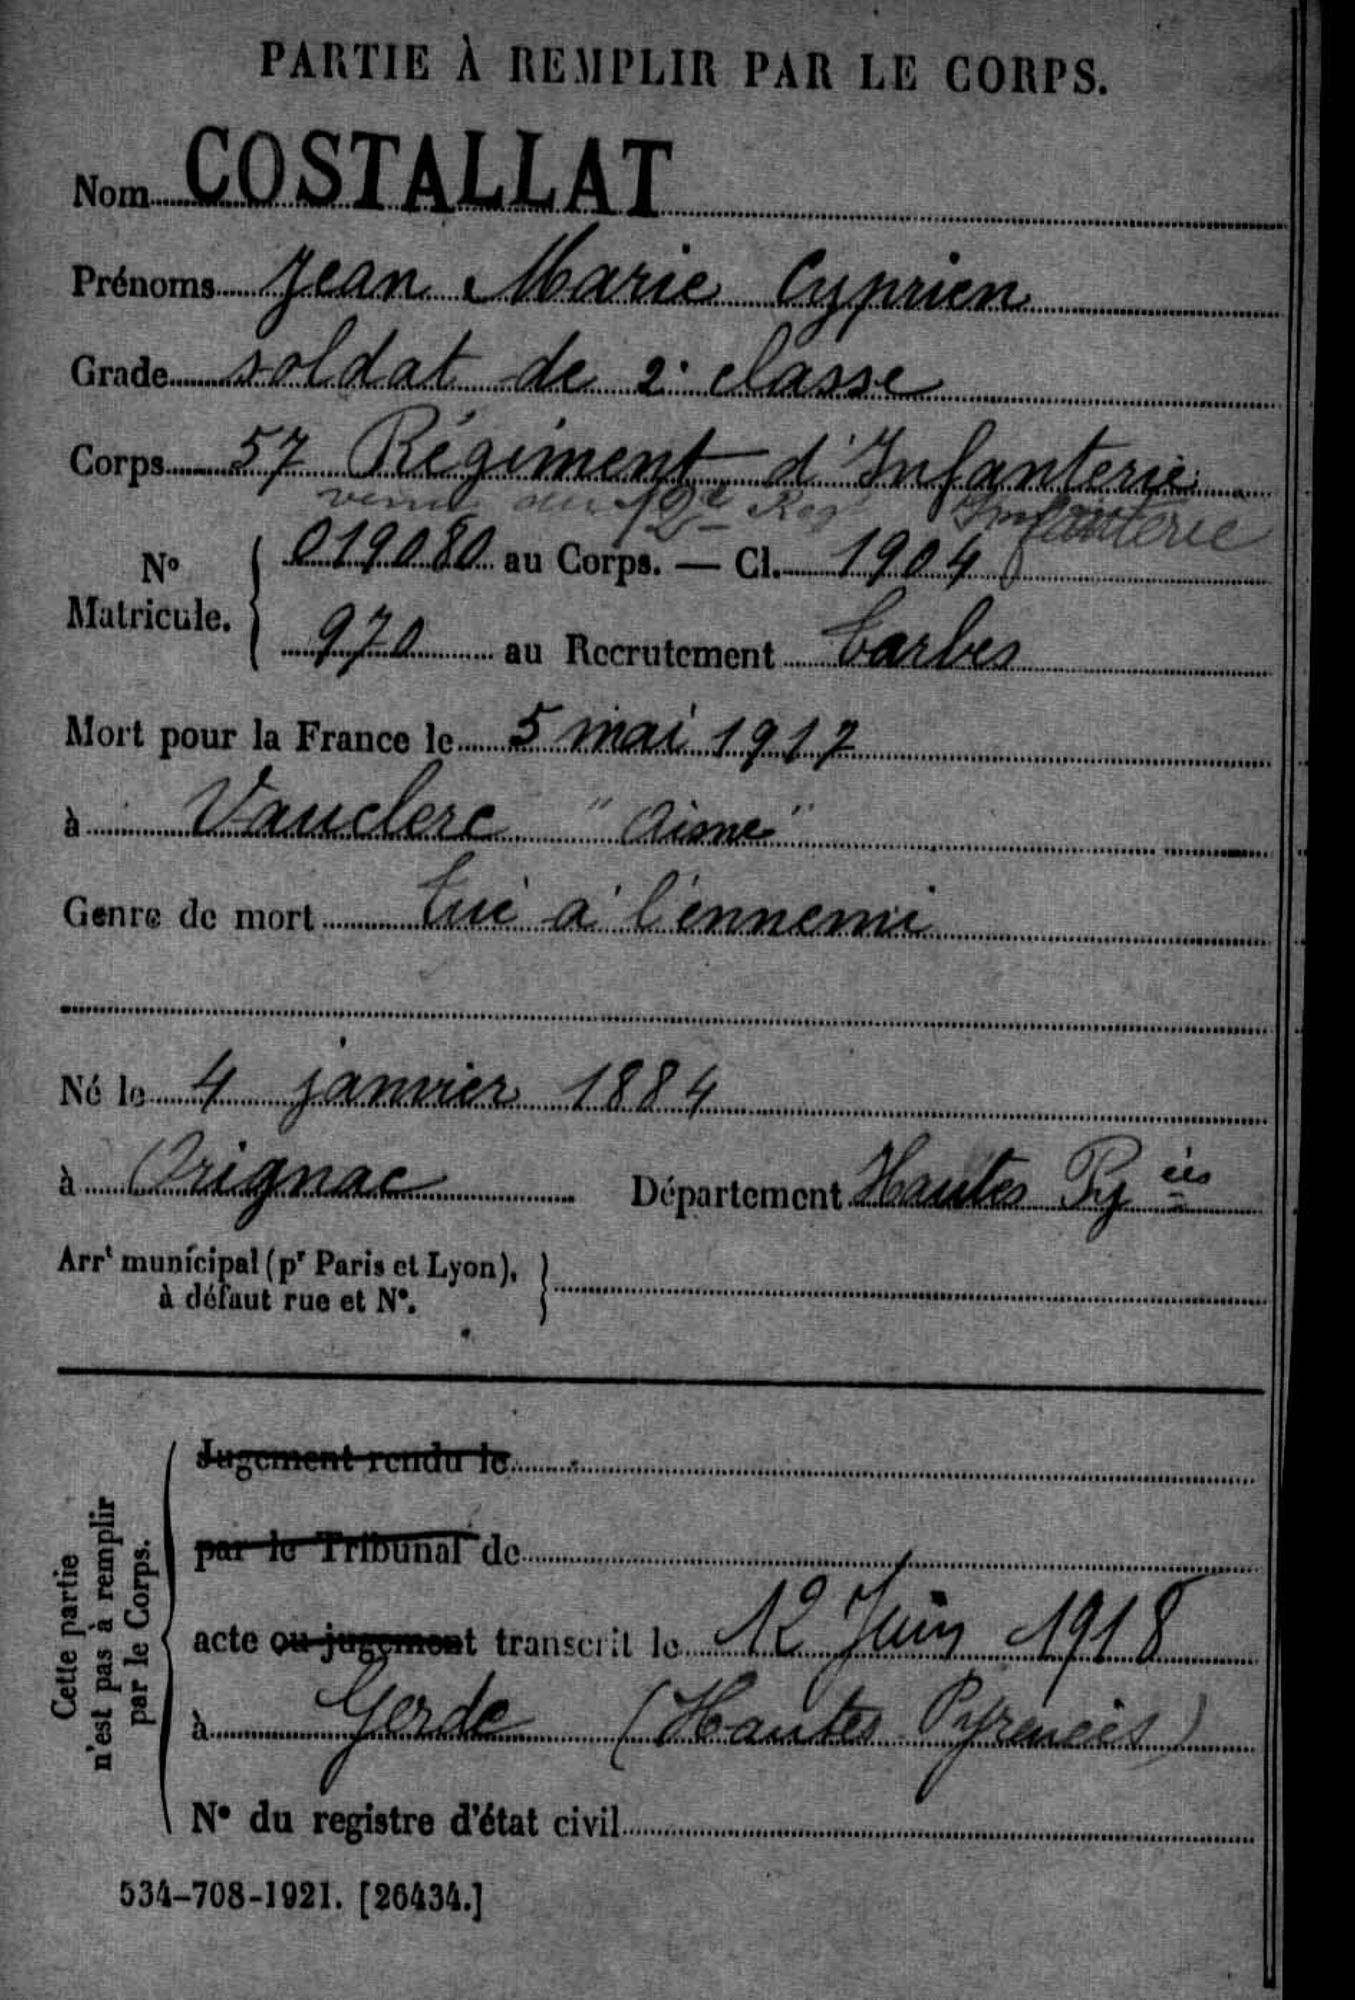 PARTIE À REMPLIR PAR LE CORPS.
Nom COSTALLAT
Prénoms Jean Marie Cyprien
Grade soldat de 2e classe
Corps 57 Régiment d'Infanterie
venu du 12e Reg Infanterie
No Matricule. 019080 au Corps. — Cl. 1904
970 au Recrutement Tarbes
Mort pour la France le 5 mai 1917
à Vauclerc "Aisne"
Genre de mort Tué à l'ennemi
Né le 4 janvier 1884
à Orignac Département Hautes Pyées
Arrt municipal (pr Paris et Lyon),
à défaut rue et No.
Cette partie
n'est pas à remplir
par le Corps.
Jugement rendu le
par le Tribunal de
acte ou jugement transcrit le 12 Juin 1918
à Gerde (Hautes Pyrenées)
No du registre d'état civil
534-708-1921. [26434.]